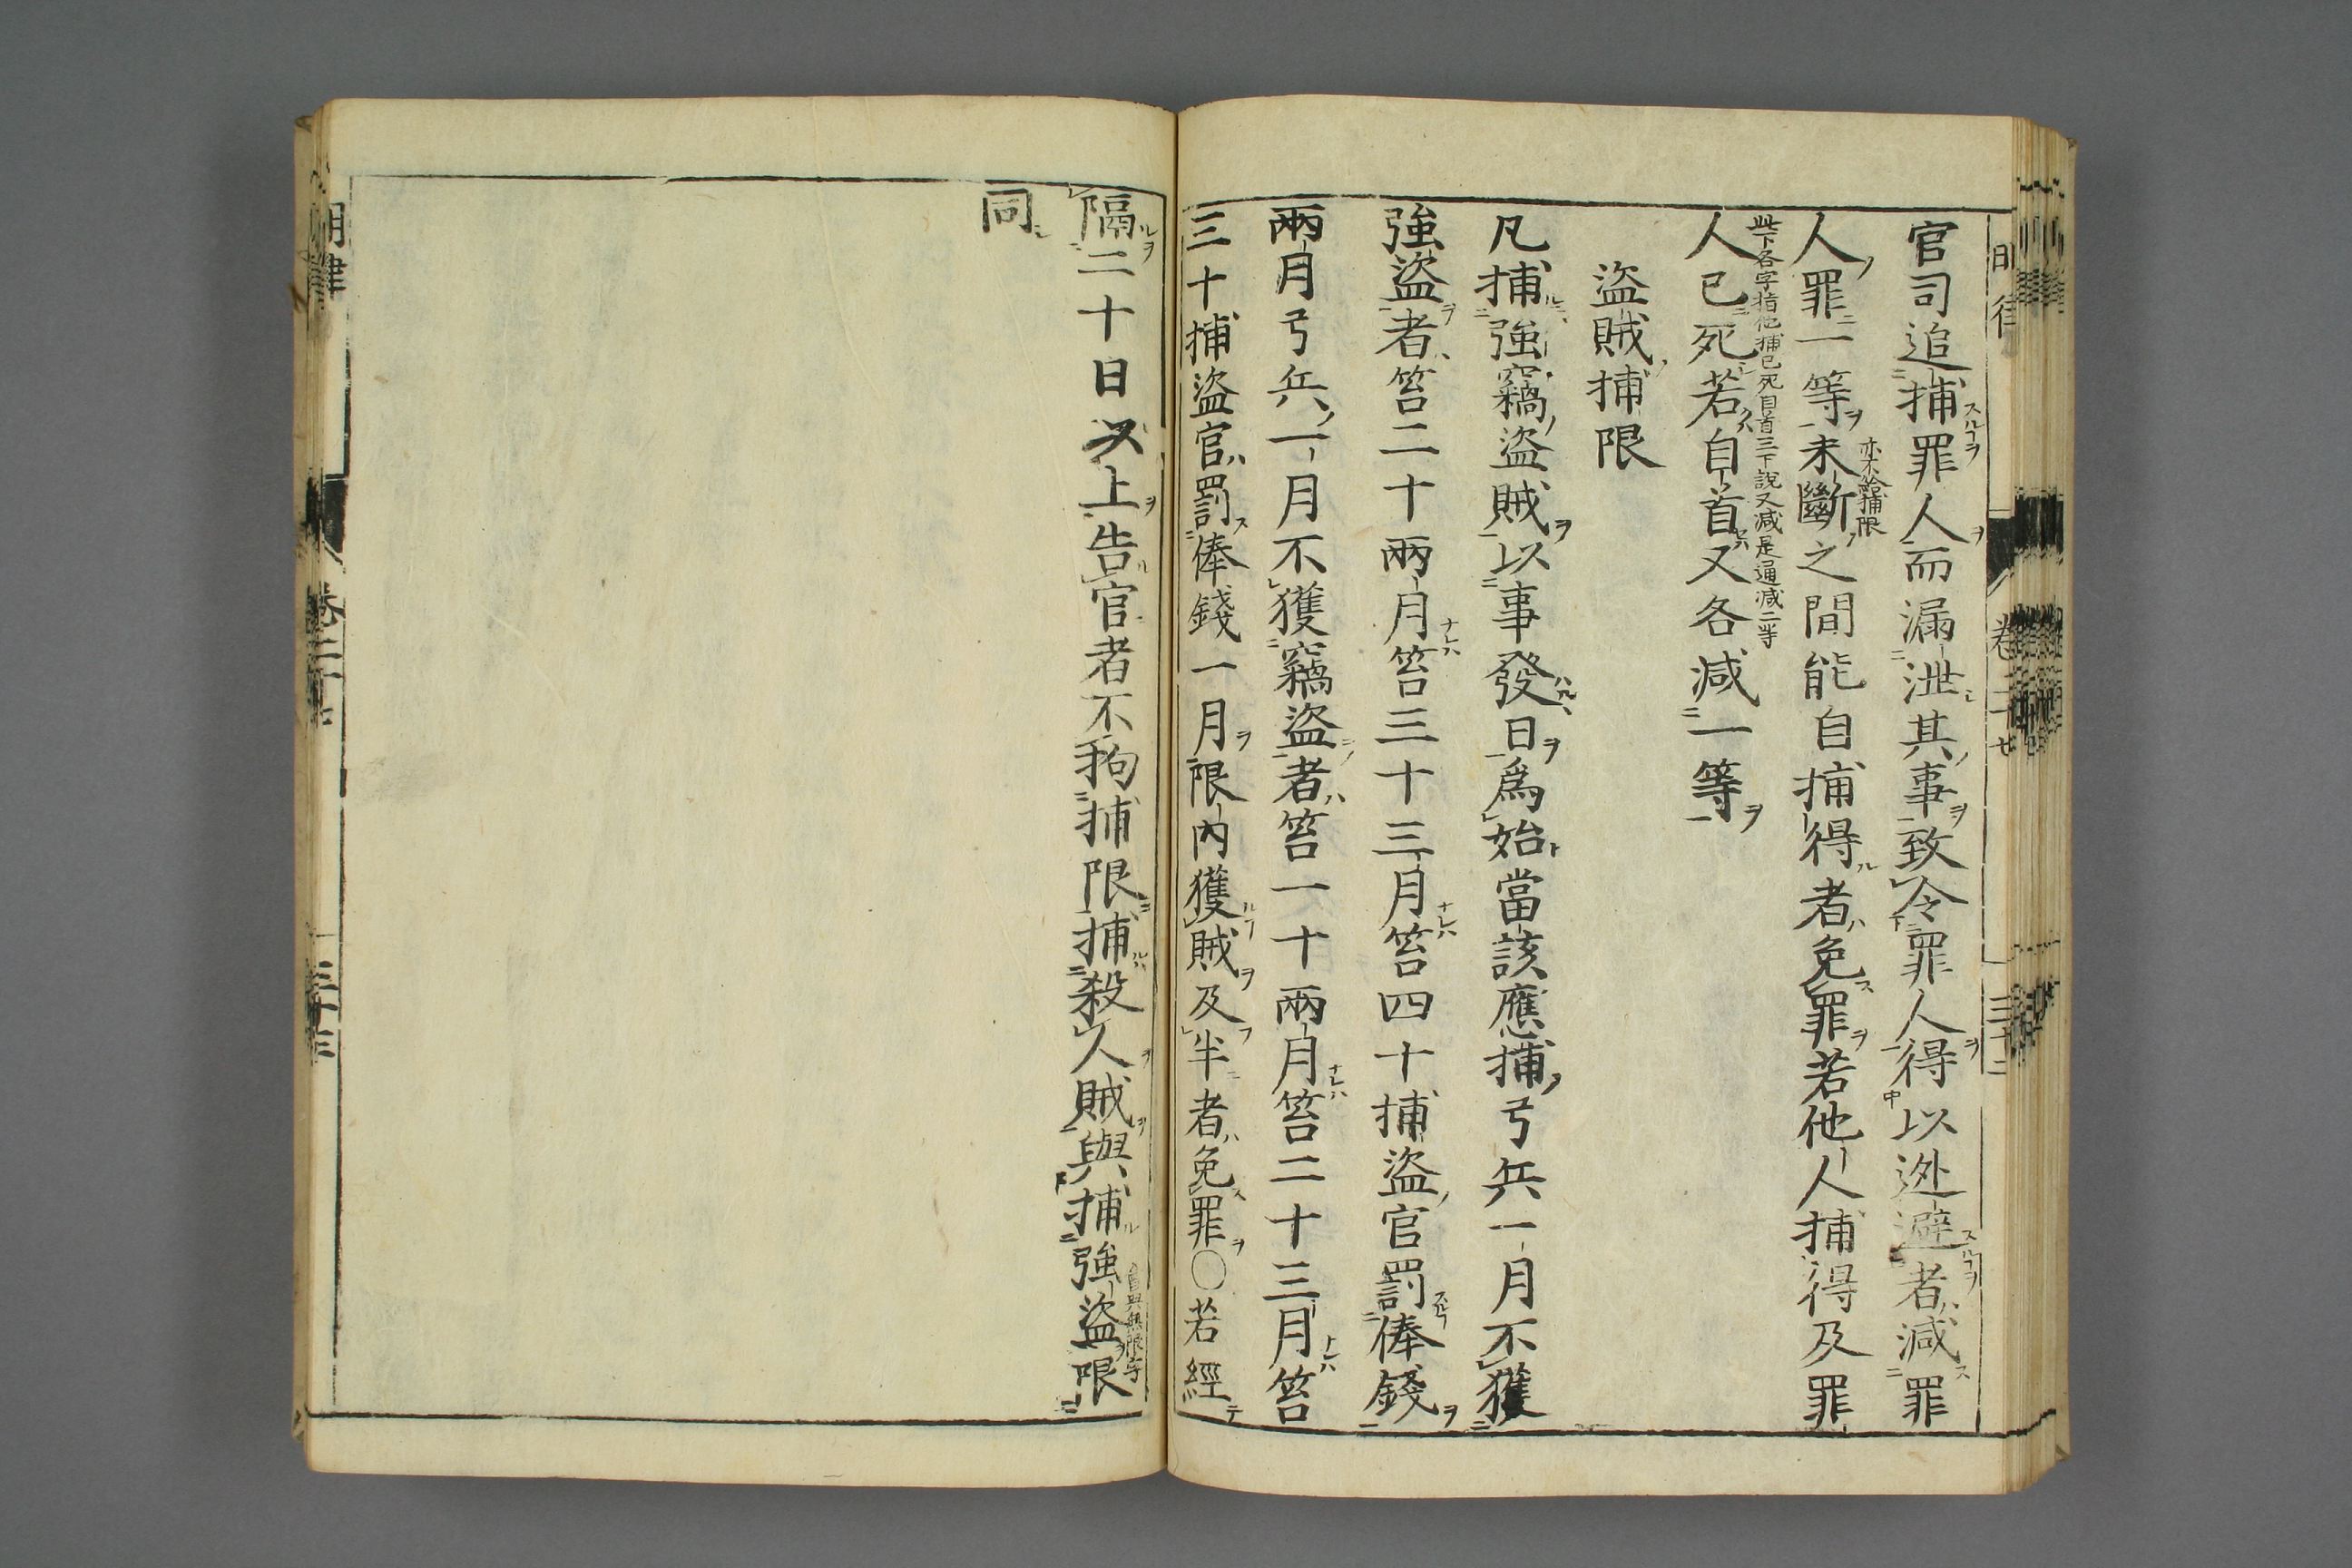 官司追捕罪人而漏泄其事致令罪人得以迯避者減罪
人罪一等未斷之間能自捕得者免罪若他人捕得及罪
亦不給捕限
此下各字指他捕已死自首三下說又減是通減二等
人已死若自首又各減一等
盜賊捕限
凡捕強竊盜賊以事發日爲始當該應捕弓兵一月不獲
強盜者笞二十兩月笞三十三月笞四十捕盜官罰俸錢
兩月弓兵一月不獲竊盜者笞一十兩月笞二十三月笞
三十捕盜官罰俸錢一月限內獲賊及半者免罪○若經
隔二十日以上告官者不拘捕限捕殺人賊與捕強盜限
同
卷二十七
三十三